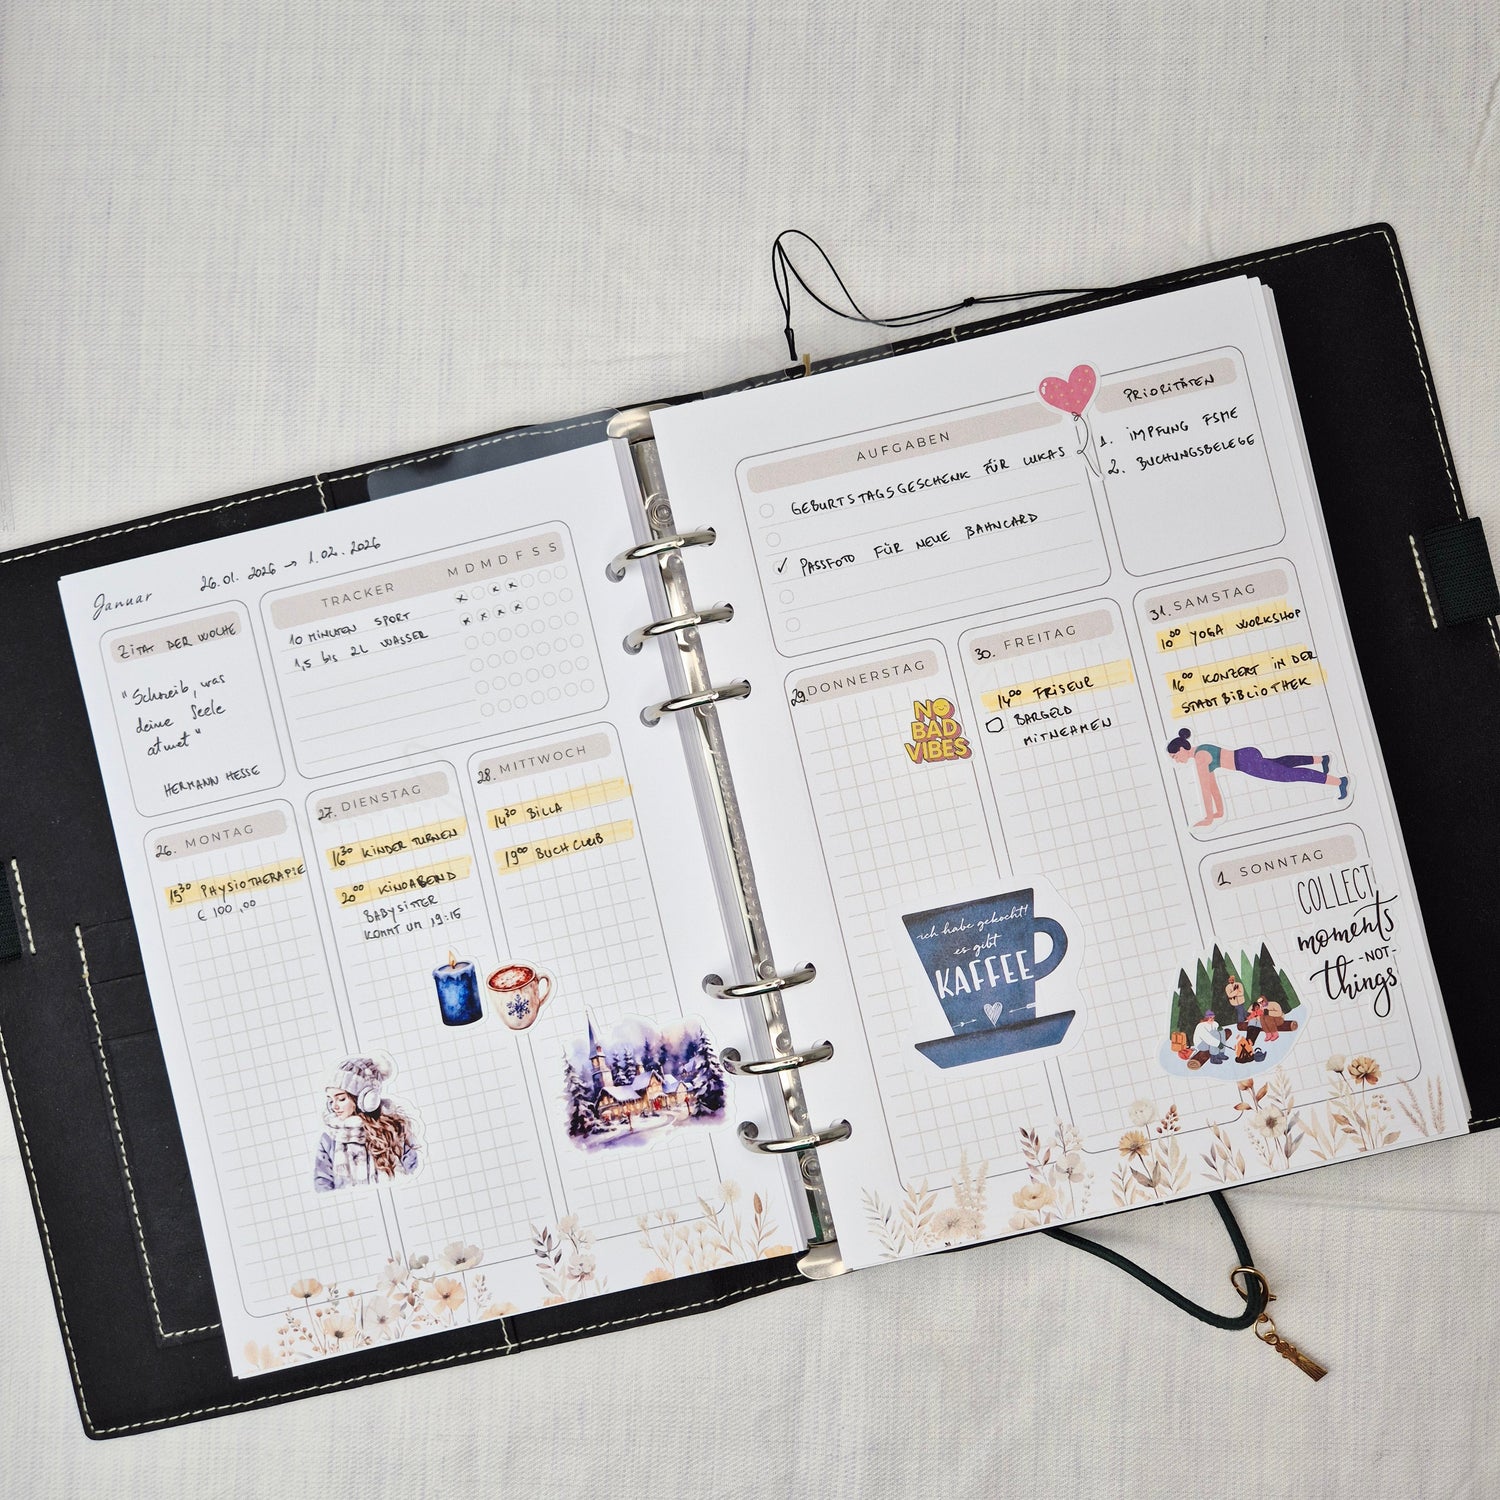 Januar
26.01. 2026 → 1.02.2026
ZITAT DER WOCHE
"Schreib, was
deine Seele
atmet"
HERMANN HESSE
TRACKER
M D M D F S S
10 MINUTEN SPORT
1,5 bis 2L WASSER
26. MONTAG
15³⁰ PHYSIOTHERAPIE
€ 100,00
27. DIENSTAG
16³⁰ KINDERTURNEN
20⁰⁰ KINOABEND
BABYSITTER
KOMMT UM 19:15
28. MITTWOCH
14³⁰ BILLA
19⁰⁰ BUCHCLUB
AUFGABEN
GEBURTSTAGSGESCHENK FÜR LUKAS
✓ PASSFOTO FÜR NEUE BAHNCARD
PRIORITÄTEN
1. IMPFUNG FSME
2. BUCHUNGSBELEGE
29. DONNERSTAG
NO
BAD
VIBES
ich habe gekocht!
es gibt
KAFFEE
30. FREITAG
14⁰⁰ FRISEUR
BARGELD
MITNEHMEN
31. SAMSTAG
10⁰⁰ YOGA WORKSHOP
16⁰⁰ KONZERT IN DER
STADTBIBLIOTHEK
1. SONNTAG
COLLECT
moments
-NOT-
things